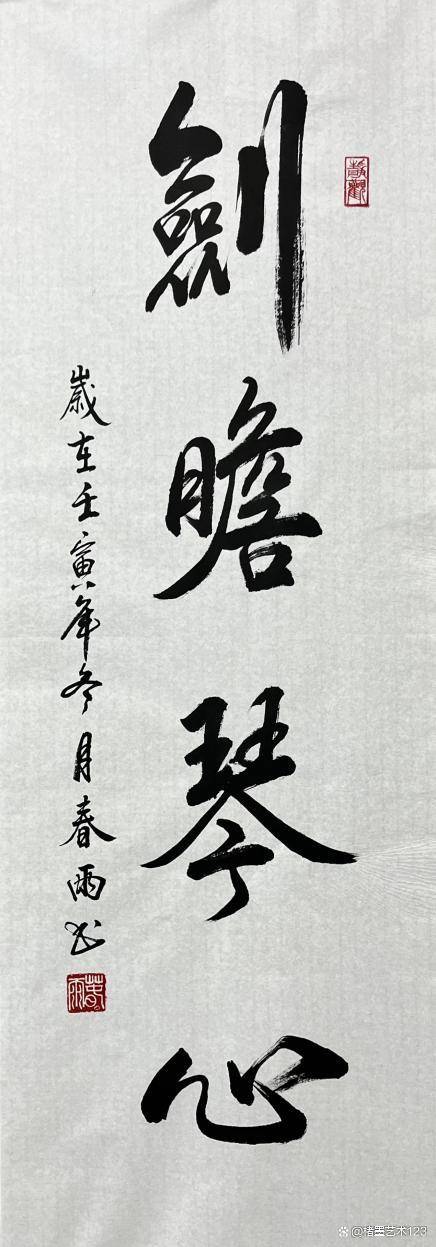 劍膽琴心
歲在壬寅年冬月春雨書
春雨
@堵墨艺术123